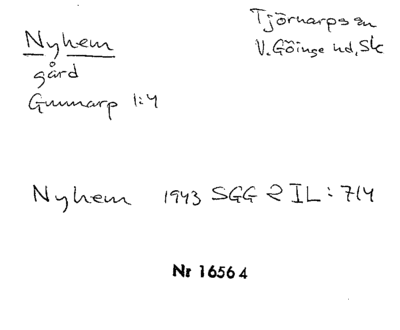 Nyhem
gård
Gunnarp 1:4
Tjörnarps sn
V. Göinge hd, Sk
Nyhem 1943 SGG 2 IL : 714
Nr 16564